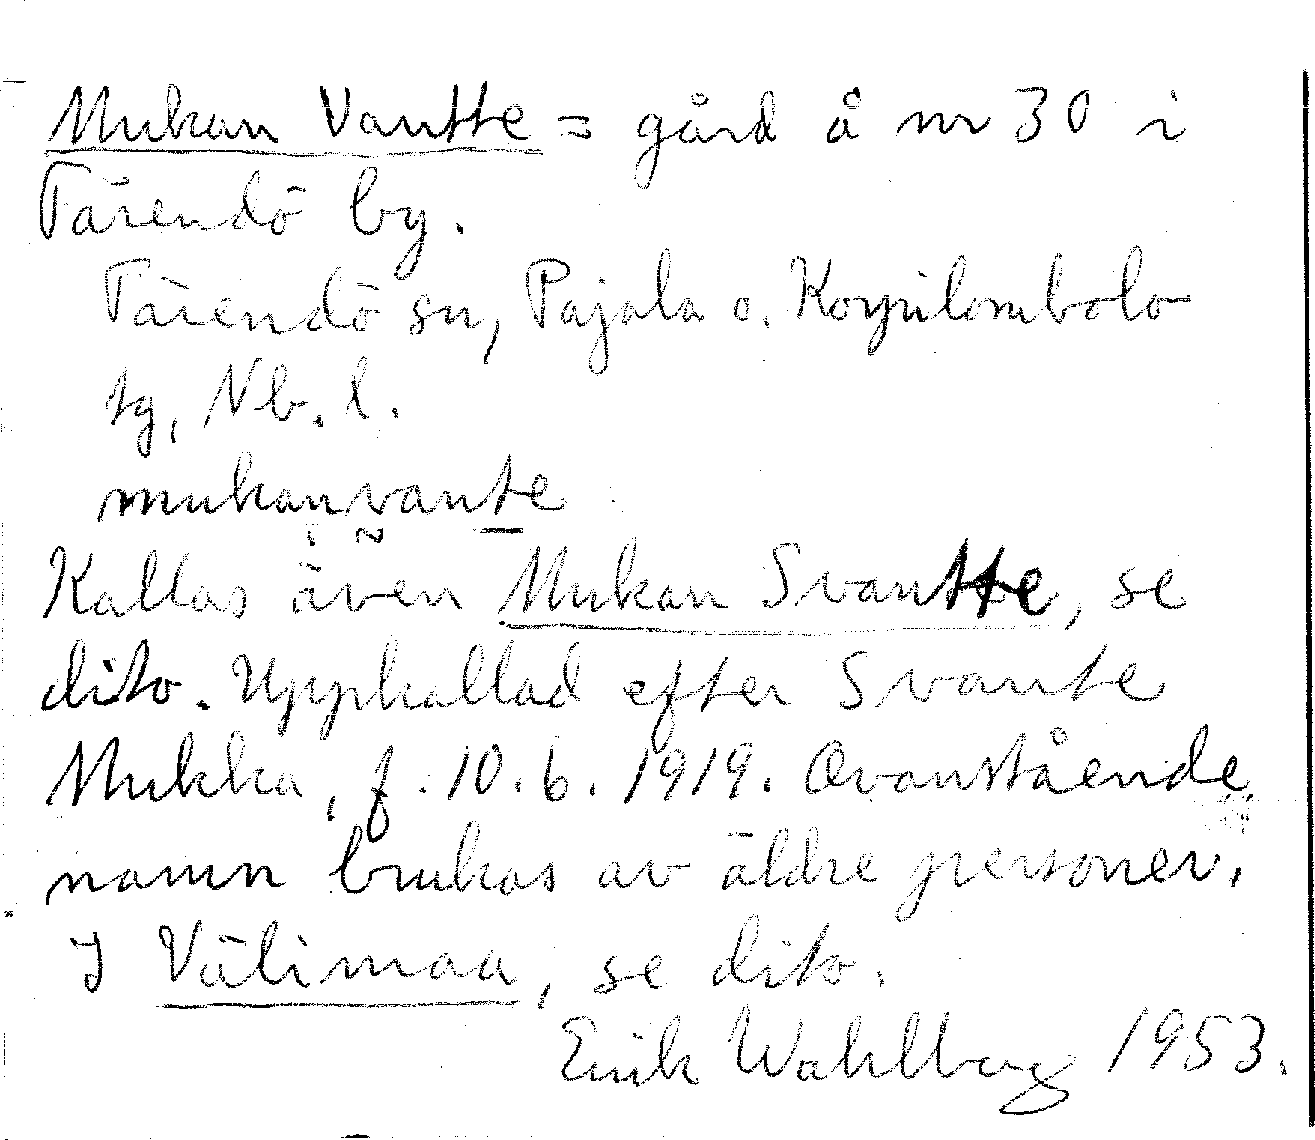 Mukan Vantte = gård å nr 30 i
Tärendö by.
Tärendö sn, Pajala o. Korpilombolo
tg, Nb. l.
mukanvante
Kallas även Mukan Svantte, se
dito. Uppkallad efter Svante
Mukka, f. 10.6.1919. Ovanstående
namn brukas av äldre personer.
I Välimaa, se dito.
Erik Wahlberg 1953.